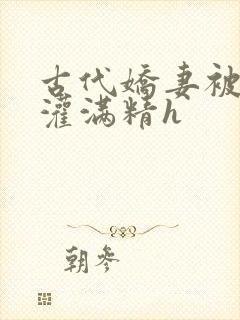 古代嬌妻被
灌满精h
朝参